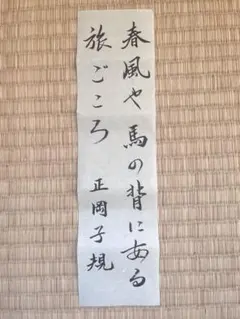 春風や馬の背にある
旅ごころ 正岡子規